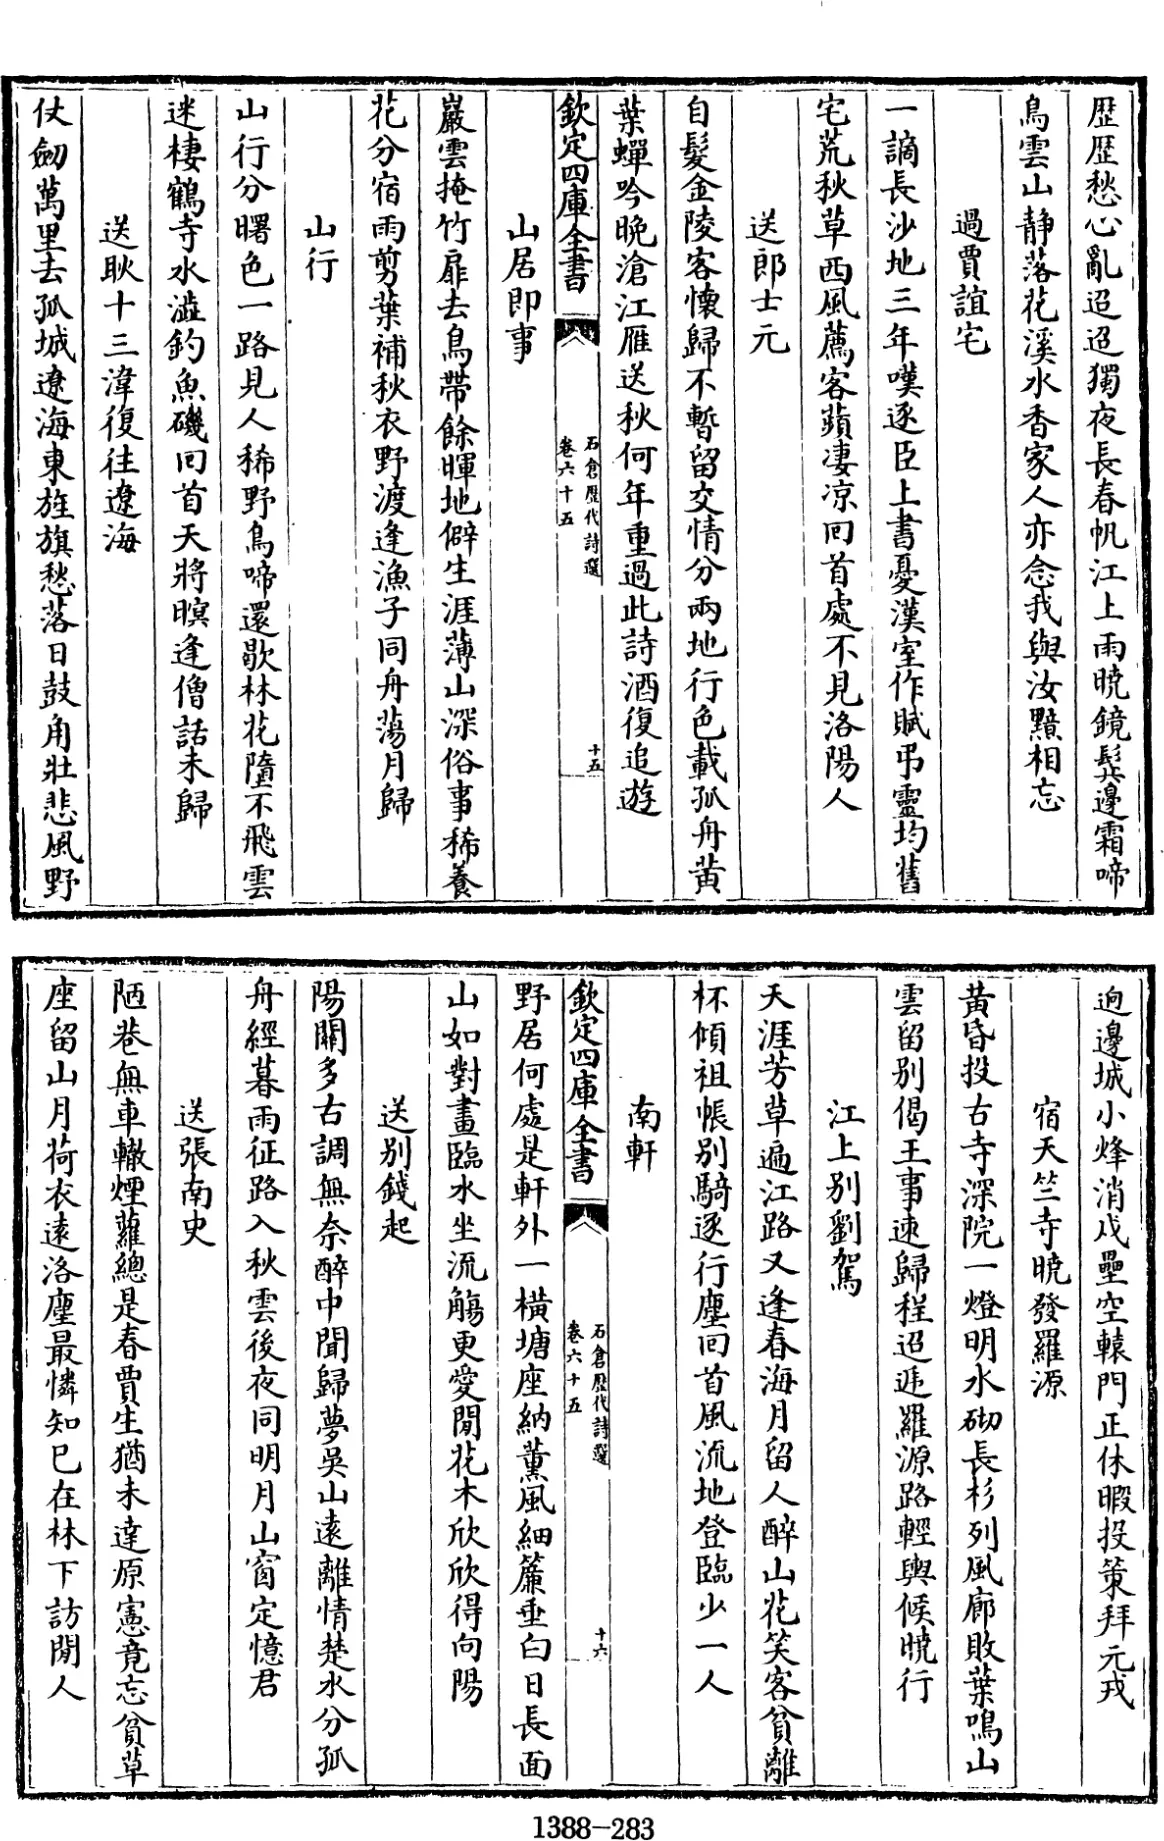 歴歴愁心亂迢迢獨夜長春帆江上雨曉鏡鬂邊霜啼
鳥雲山静落花溪水香家人亦念我與汝黯相忘
過賈誼宅
一謫長沙地三年嘆逐臣上書憂漢室作賦弔靈均舊
宅荒秋草西風薦客蘋凄凉回首處不見洛陽人
送郎士元
自髮金陵客懷歸不暫留交情分兩地行色載孤舟黄
葉蟬吟晩滄江雁送秋何年重過此詩酒復追遊
欽定四庫全書
石倉歴代詩選
卷六十五
十五
山居即事
巖雲掩竹扉去鳥帶餘暉地僻生涯薄山深俗事稀養
花分宿雨剪葉補秋衣野渡逢漁子同舟蕩月歸
山行
山行分曙色一路見人稀野鳥啼還歇林花墮不飛雲
迷棲鶴寺水澁釣魚磯回首天將暝逢僧話未歸
送耿十三湋復往遼海
仗劒萬里去孤城遼海東旌旗愁落日鼓角壯悲風野
逈邊城小烽消戍壘空轅門正休暇投策拜元戎
宿天竺寺曉發羅源
黄昏投古寺深院一燈明水砌長杉列風廊敗葉鳴山
雲留別偈王事速歸程迢遞羅源路輕輿候曉行
江上別劉駕
天涯芳草遍江路又逢春海月留人醉山花笑客貧離
杯傾祖帳別騎逐行塵回首風流地登臨少一人
南軒
欽定四庫全書
石倉歴代詩選
卷六十五
十六
野居何處是軒外一横塘座納薰風細簾垂白日長面
山如對畫臨水坐流觴更愛閒花木欣欣得向陽
送別錢起
陽關多古調無奈醉中聞歸夢吳山遠離情楚水分孤
舟經暮雨征路入秋雲後夜同明月山窗定憶君
送張南史
陋巷無車轍煙蘿總是春賈生猶未達原憲竟忘貧草
座留山月荷衣遠洛塵最憐知已在林下訪閒人
1388-283